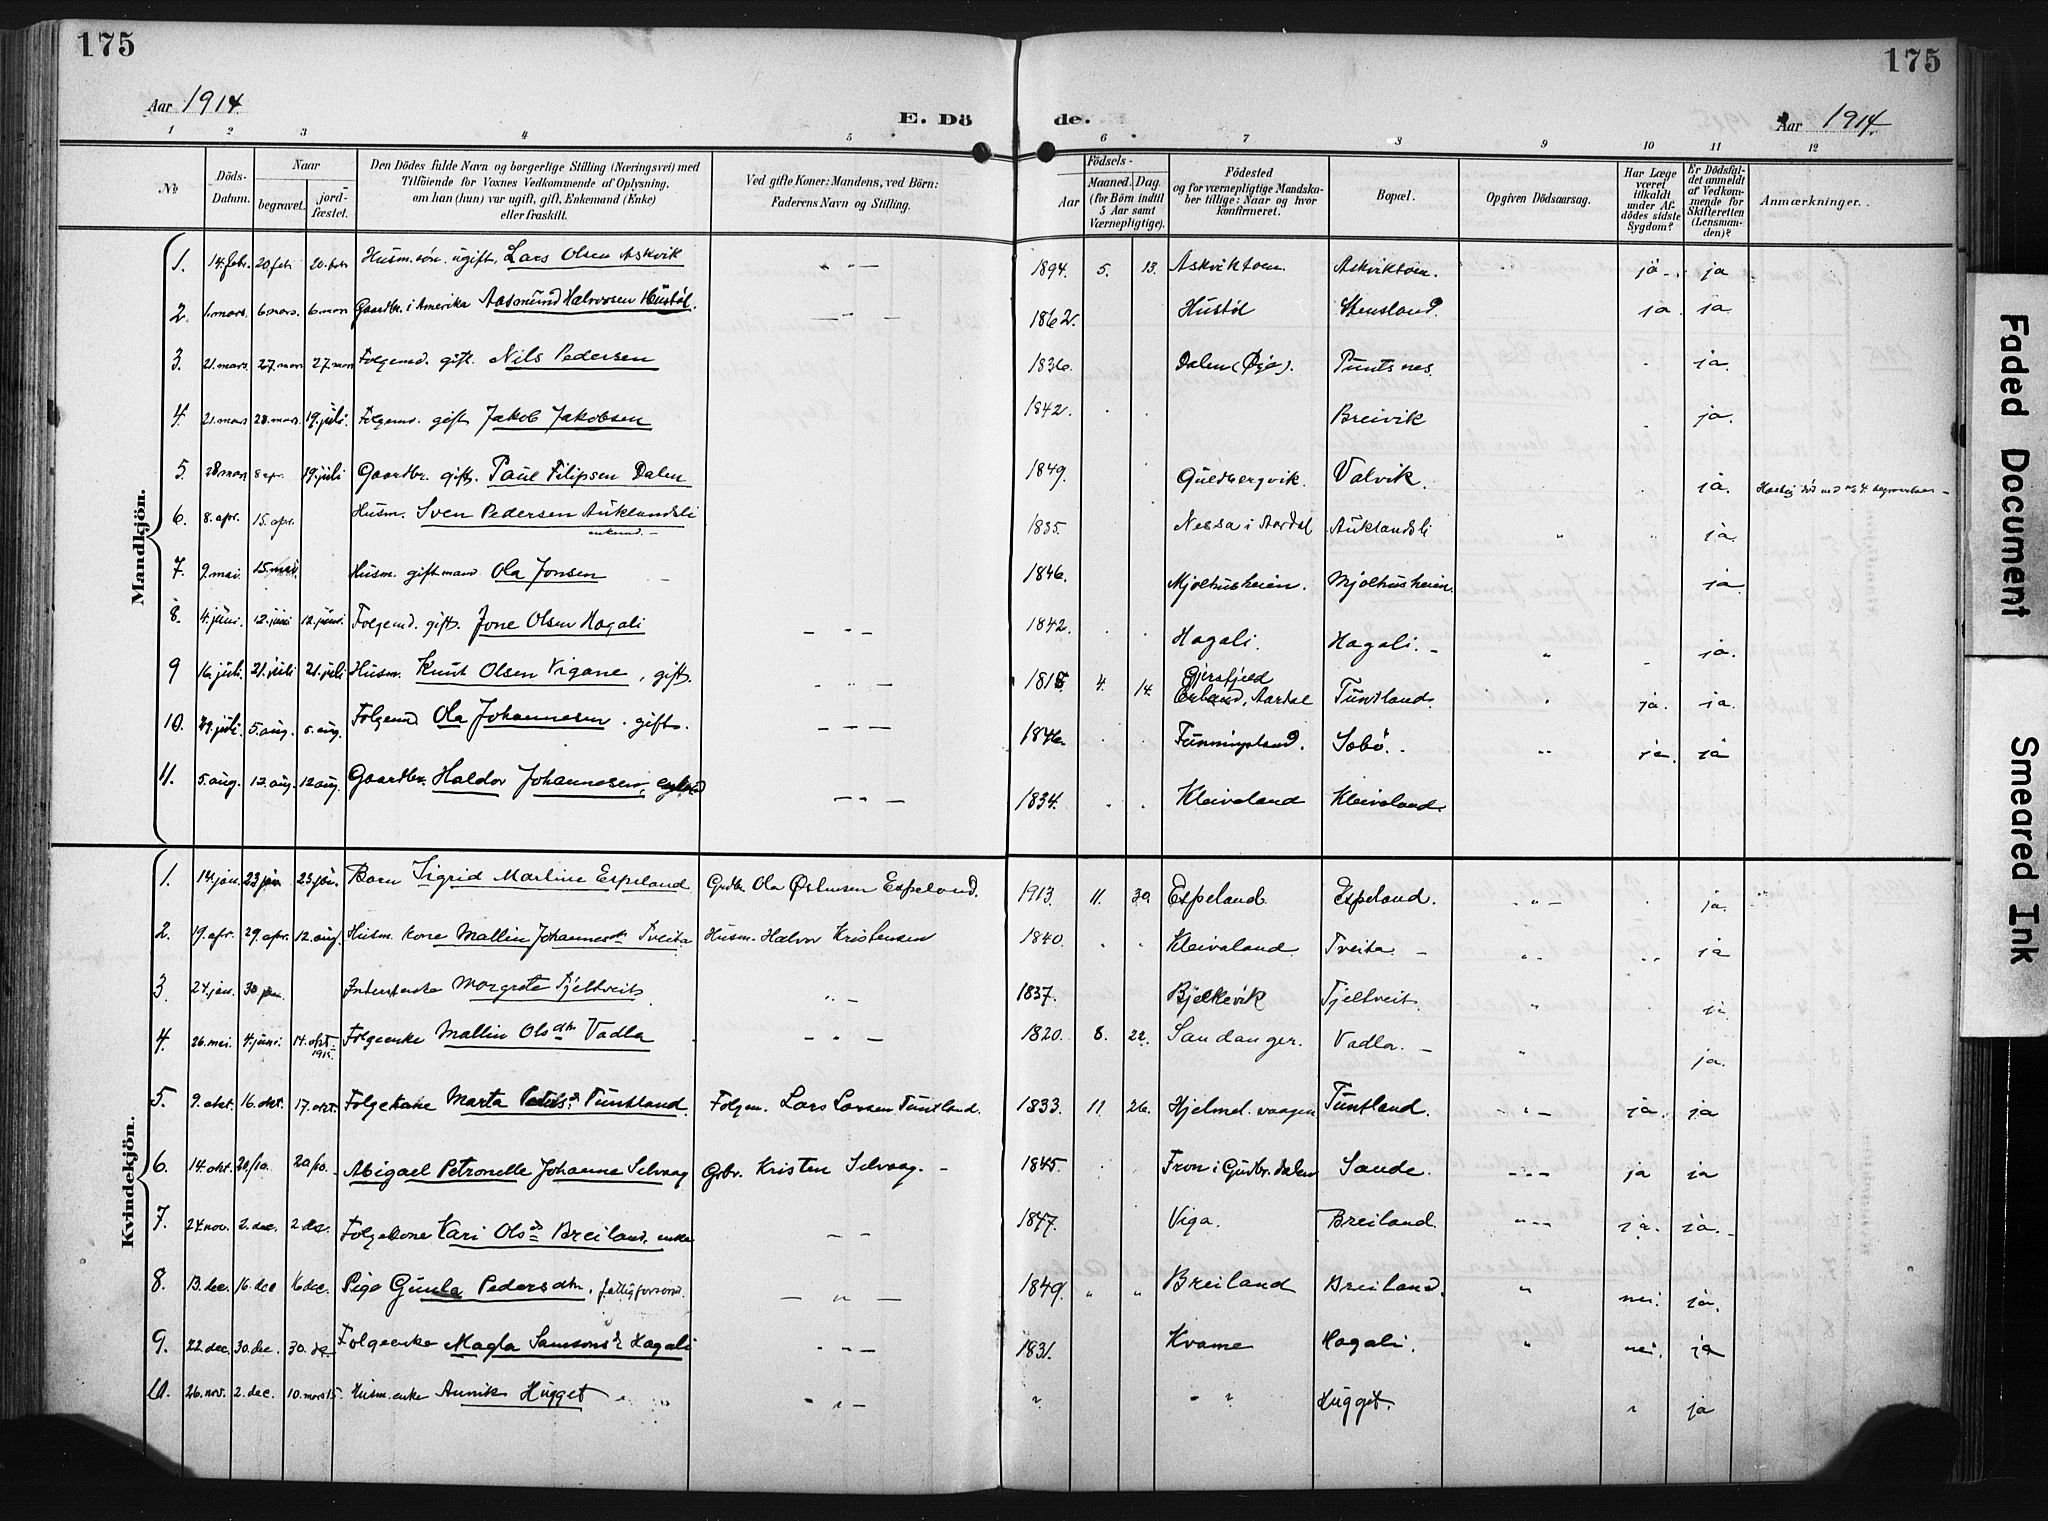 175
175
Aar 1914.
E. Dö
de.
Aar 1914.
1 2 3 4 5 6 7 8 9 10 11 12
No
Döds-
Datum.
Naar
begravet.
jord-
fæstet.
Den Dödes fulde Navn og borgerlige Stilling (Næringsvei) med
Tilföiende for Voxnes Vedkommende af Oplysning.
om han (hun) var ugift, gift, Enkemand (Enke)
eller fraskilt.
Ved gifte Koner: Mandens, ved Börn:
Faderens Navn og Stilling.
Födsels-
Aar
Maaned. Dag.
(for Börn indtil
5 Aar samt
Værnepligtige).
Födested
og for værnepligtige Mandska-
ber tillige: Naar og hvor
konfirmeret.
Bopæl.
Opgiven Dödsaarsag.
Har Læge
været
tilkaldt
under Af-
dödes sidste
Sygdom?
Er Dödsfal-
det anmeldt
af Vedkom-
mende for
Skifteretten
(Lensman-
den)?
Anmærkninger.
Mandkjön.
1. 14. febr. 20. feb 20. feb Husm. sön. ugift, Lars Olsen Askvik 1894. 5. 13. Askviktoen. Askviktoen. ja ja
2. 1. mars. 6. mars. 6. mars Gaardbr. i Amerika Aasmund Halvorsen Hustöl. 1862. Hustöl Stensland. ja. ja.
3. 21. mars. 27. mars 27. mars Folgemd. gift. Nils Pedersen 1836. Dalen (Öye). Puntsnes. ja.
4. 21. mars 28. mars 19. juli. Folgemd. gift Jakob Jakobsen 1842. Breivik ja.
5. 28 mars 8 apr. 19. juli Gaardbr. gift. Paul Filipsen Dalen 1849. Guldbergvik. Valvik. ja.
6. 8. apr. 15. apr. Husm. Sven Pedersen Auklandsli enkemd. 1835. Nessa i Aardal Auklandsli ja.
7. 9. mai. 15. mai. Husm. giftmand Ola Jonsen 1846. Mjölhusheien. Mjölhusheien. ja
8. 4. juni. 12. juni 12. juni. Folgemd. gift. Jone Olsen Hagali 1842. Hagali. Hagali. ja.
9 16. juli. 21. juli 21. juli Husm. Knut Olsen Vigane, gift. 1815 4. 14. Gjersfjeld Erland, Aardal Tuntland. ja. ja.
10. 29. juli. 5. aug. 5. aug. Folgemd Ola Johannesen. gift. 1846. Funningsland. Sobö. ja. ja
11. 5. aug. 12. aug. 12 aug. Gaardbr. Haldor Johannesen, 1834. Kleivaland Kleivaland.
Kvindekjön.
1. 14. jan. 23 jan 23 jan. Barn Sigrid Martine Espeland Grdbr. Ola Östensen Espeland. 1913. 11. 30. Espeland. Espeland. ja.
2. 19. apr. 29. apr. 12. aug. Husm. kone Mallin Johannesdtr Tveita Husm. Halvor Kristensen 1840. Kleivaland. Tveita. ja
3. 24. jan. 30 jan. Margrete Tjeltveit 1837. Bjelkevik Tjeltveit. ja.
4. 26. mai. 4. juni. 14. okt. 1915. Folgeenke Mallin Olsdtr Vadla 1820. 8. 22. Sandanger. Vadla. ja.
5. 9. okt. 16. okt. 17. okt. Folgekone Marta Tuntland. Folgem. Lars Larsen Tuntland. 1833. 11. 26. Hjelmel. vaagen Tuntland. ja. ja
6. 14. okt. 20/10. 20/10. Abigael Petronelle Johanne Selvaag Grbr. Kristen Selvaag. 1845. Fron i Gudbr. dalen Sande. ja ja
7. 24. nov. 2. dec. 2 dec. Folgekone Kari Olsd Breiland, enke 1847. Viga. Breiland. ja. ja.
8. 13. dec. 16. dec 16 dec. Pige Gunla Pedersdtr, fattigforsörg. 1849. Breiland Breiland. nei. ja.
9. 22. dec. 30. dec. 30. dec Folgeenke Magla Samsonsd. Hagali 1831. Kvame Hagali. nei. ja
10. 26. nov. 2. dec. 10. mars 15. Husm. enke Annik Hugget Hugget. ja
Faded Document
Smeared Ink